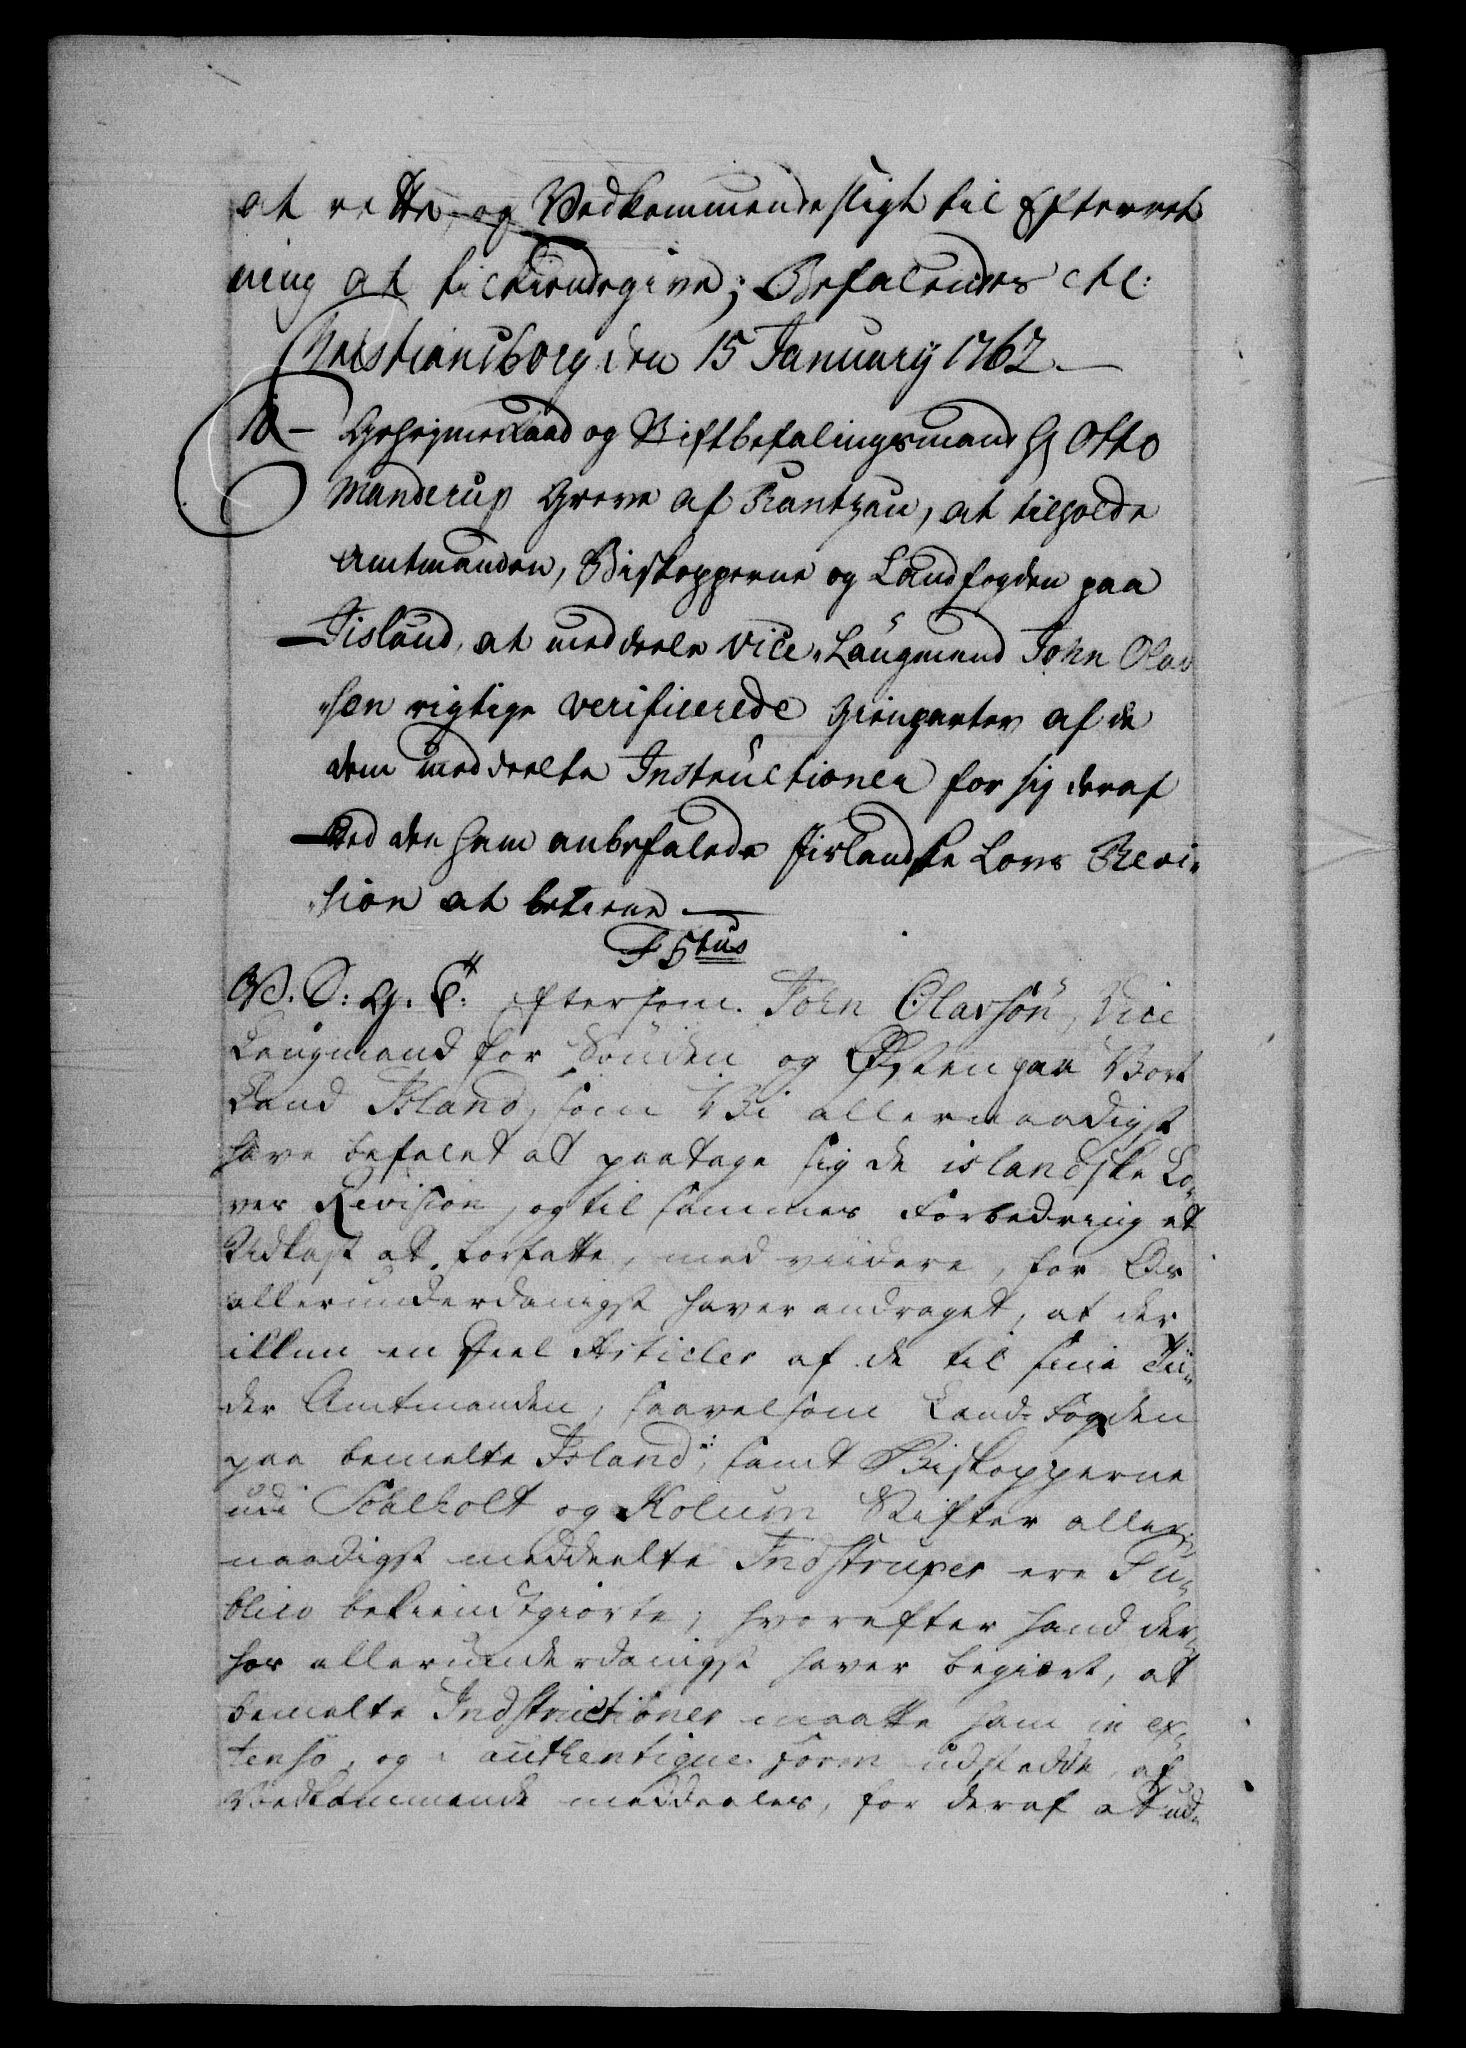 at rette, og Vedkommende sligt til Efterret
ning at tilkiendegive; Befalendes etc:
Christiansborg den 15 January 1762.
Geheimeraad og Stiftbefalingsmand H Otto
Manderup Greve af Rantzau, at tilholde
Amtmanden, Biskopperne og Landfogden paa
Iisland, at meddeele Vice-Laugmand John Olav
sen rigtige verificerede Gienparter af de
dem meddeelte Instructioner for sig deraf
ved den ham anbefalede Iislandske Lovs Revi-
sion at betiene
F 5tus
V. S: G. T: Eftersom John Olavsøn, Vice
Laugmand for Sønden og Østen paa Vort
Land Island, som Vi allernaadigst
have befalet at paatage sig de islandske Lo-
ves Revision, og til sammes Forbedring et
Udkast at forfatte, med viidere, for Os
allerunderdanigst haver andraget, at der
ikkun en Deel Articler af de til sine Tii-
der Amtmanden, saavelsom Land-Fogden
paa bemelte Island, samt Biskopperne
udi Schalholt og Holum Stifter aller-
naadigst meddeelte Instruxer ere Pu-
blico bekiendtgiorte, hvorefter hand der-
for allerunderdanigst haver begiært, at
bemelte Indstructioner maatte ham in ex-
tenso, og i authentique Form udstædde, af
Vedkommende meddeeles, for deraf at ud-